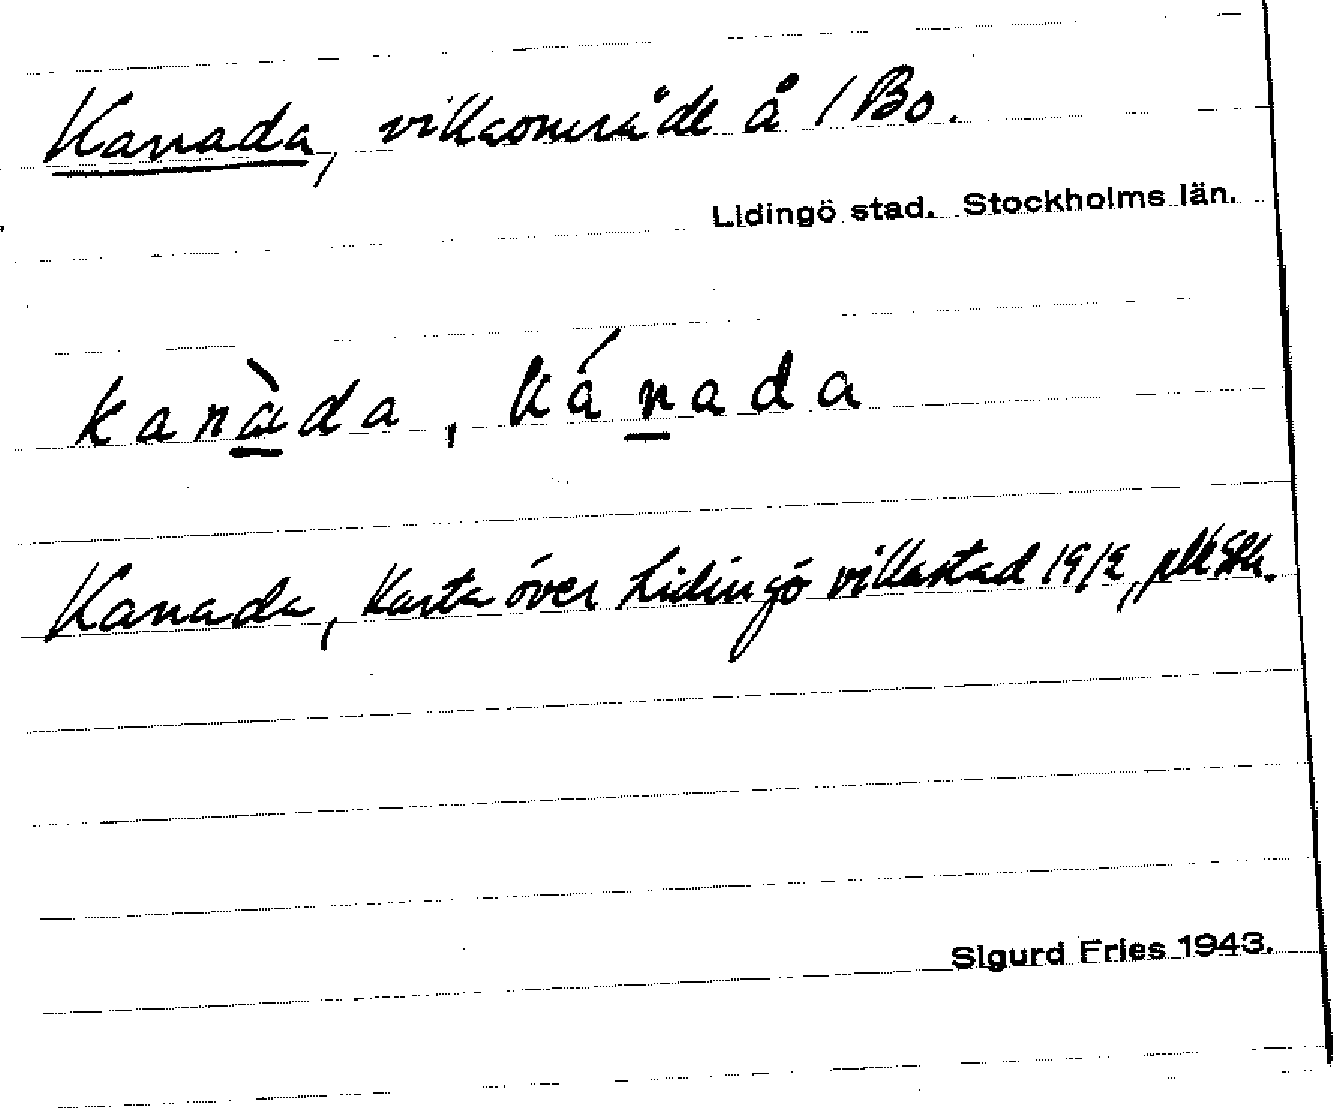 Kanada, villaområde å 1 Bo.
Lidingö stad. Stockholms län.
kanàda, kánada
Kanada, Karta över Lidingö villastad 1912,
Sigurd Fries 1943.